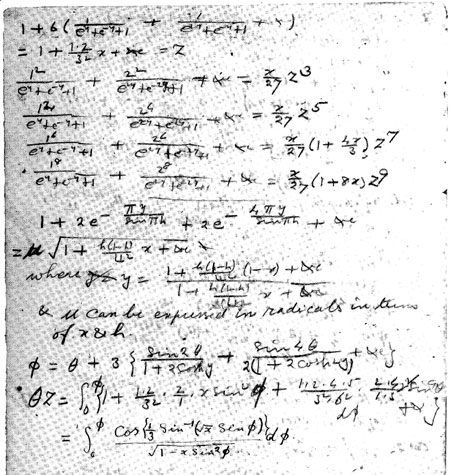 1 + 6 ( 1/(e^y+e^-y+1) + 1/(e^2y+e^-2y+1) + &c )
= 1 + 1·2/3² x + &c = z
1²/(e^y+e^-y+1) + 2²/(e^2y+e^-2y+1) + &c = x/27 z³
1⁴/(e^y+e^-y+1) + 2⁴/(e^2y+e^-2y+1) + &c = x/27 z⁵
1⁶/(e^y+e^-y+1) + 2⁶/(e^2y+e^-2y+1) + &c = x/27 (1+4x/3) z⁷
1⁸/(e^y+e^-y+1) + 2⁸/(e^2y+e^-2y+1) + &c = x/27 (1+8x) z⁹
1 + 2e^-(πy/sin πh) + 2e^-(4πy/sin πh) + &c
= μ √(1 + h(1-h)/1² x + &c)
where y = (1 + h(1-h)/1² (1-x) + &c)/(1 + h(1-h)/1² x + &c)
& μ can be expressed in radicals in terms
of x & h.
φ = θ + 3 { sin 2θ/(1+2cosh y) + sin 4θ/(2(1+2cosh 2y)) + &c }
θz = ∫₀^φ {1 + 1·2/3² · 2/1 · x sin² φ + 1·2·4·5/3²·6² · 2·4/1·3 + &c} dφ
= ∫₀^φ cos{1/3 sin⁻¹(√x sin φ)}/√(1-x sin² φ) dφ